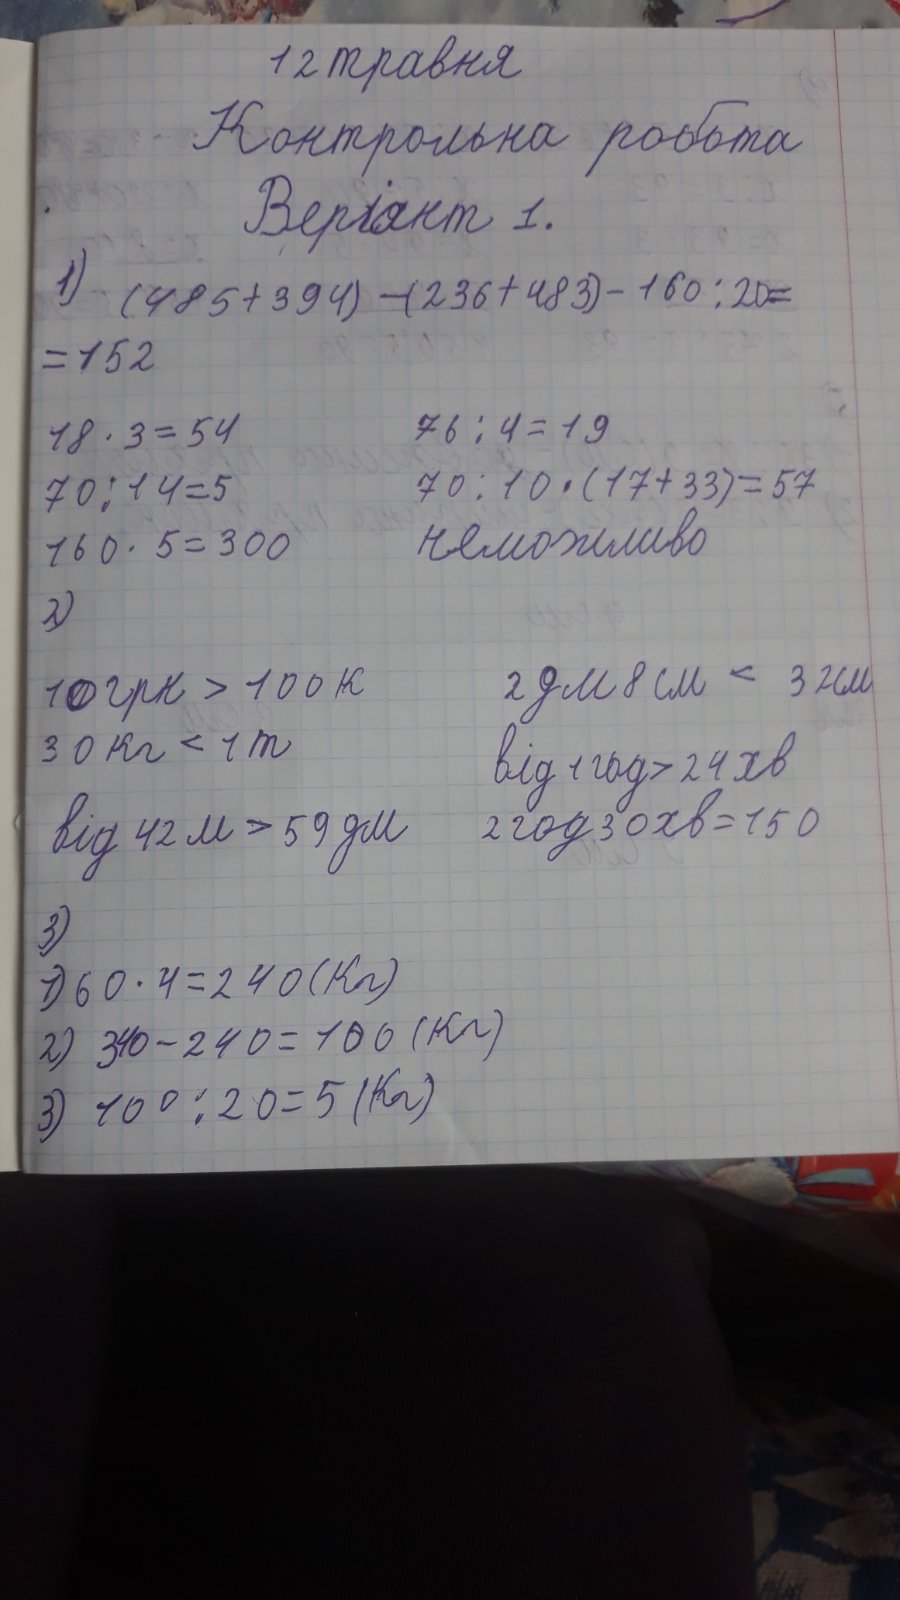 12 травня
Контрольна робота
Веріант 1.
1) (485+394)-(236+483)-160:20=
=152
18·3=54 76:4=19
70:14=5 70:10·(17+33)=57
160·5=300 неможливо
2)
10 грн > 100 к 2 дм 8 см < 32 см
30 кг < 1 т від 1 год > 24 хв
від 42 м > 59 дм 2 год 30 хв = 150
3)
1) 60·4=240 (кг)
2) 340-240=100 (кг)
3) 100:20=5 (кг)